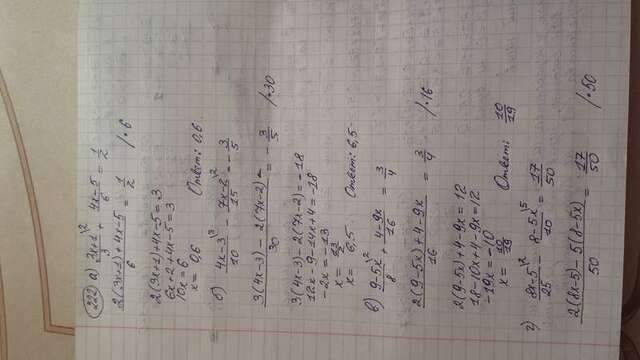 222 а) (3x+1)/3 \2 + (4x-5)/6 = 1/2
(2(3x+1)+4x-5)/6 = 1/2 /•6
2(3x+1)+4x-5=3
6x+2+4x-5=3
10x=6
x= 0,6 Ответ: 0,6.
б) (4x-3)/10 \3 - (7x-2)/15 \2 = - 3/5
(3(4x-3) - 2(7x-2))/30 = - 3/5 /•30
3(4x-3)-2(7x-2)=-18
12x-9-14x+4=-18
-2x=-13
x= 13/2
x= 6,5 Ответ: 6,5.
в) (9-5x)/8 \2 + (4-9x)/16 = 3/4
(2(9-5x)+4-9x)/16 = 3/4 /•16
2(9-5x)+4-9x=12
18-10x+4-9x=12
-19x=-10
x= 10/19 Ответ: 10/19
г) (8x-5)/25 \2 - (8-5x)/10 \5 = 17/50
(2(8x-5)-5(8-5x))/50 = 17/50 /•50